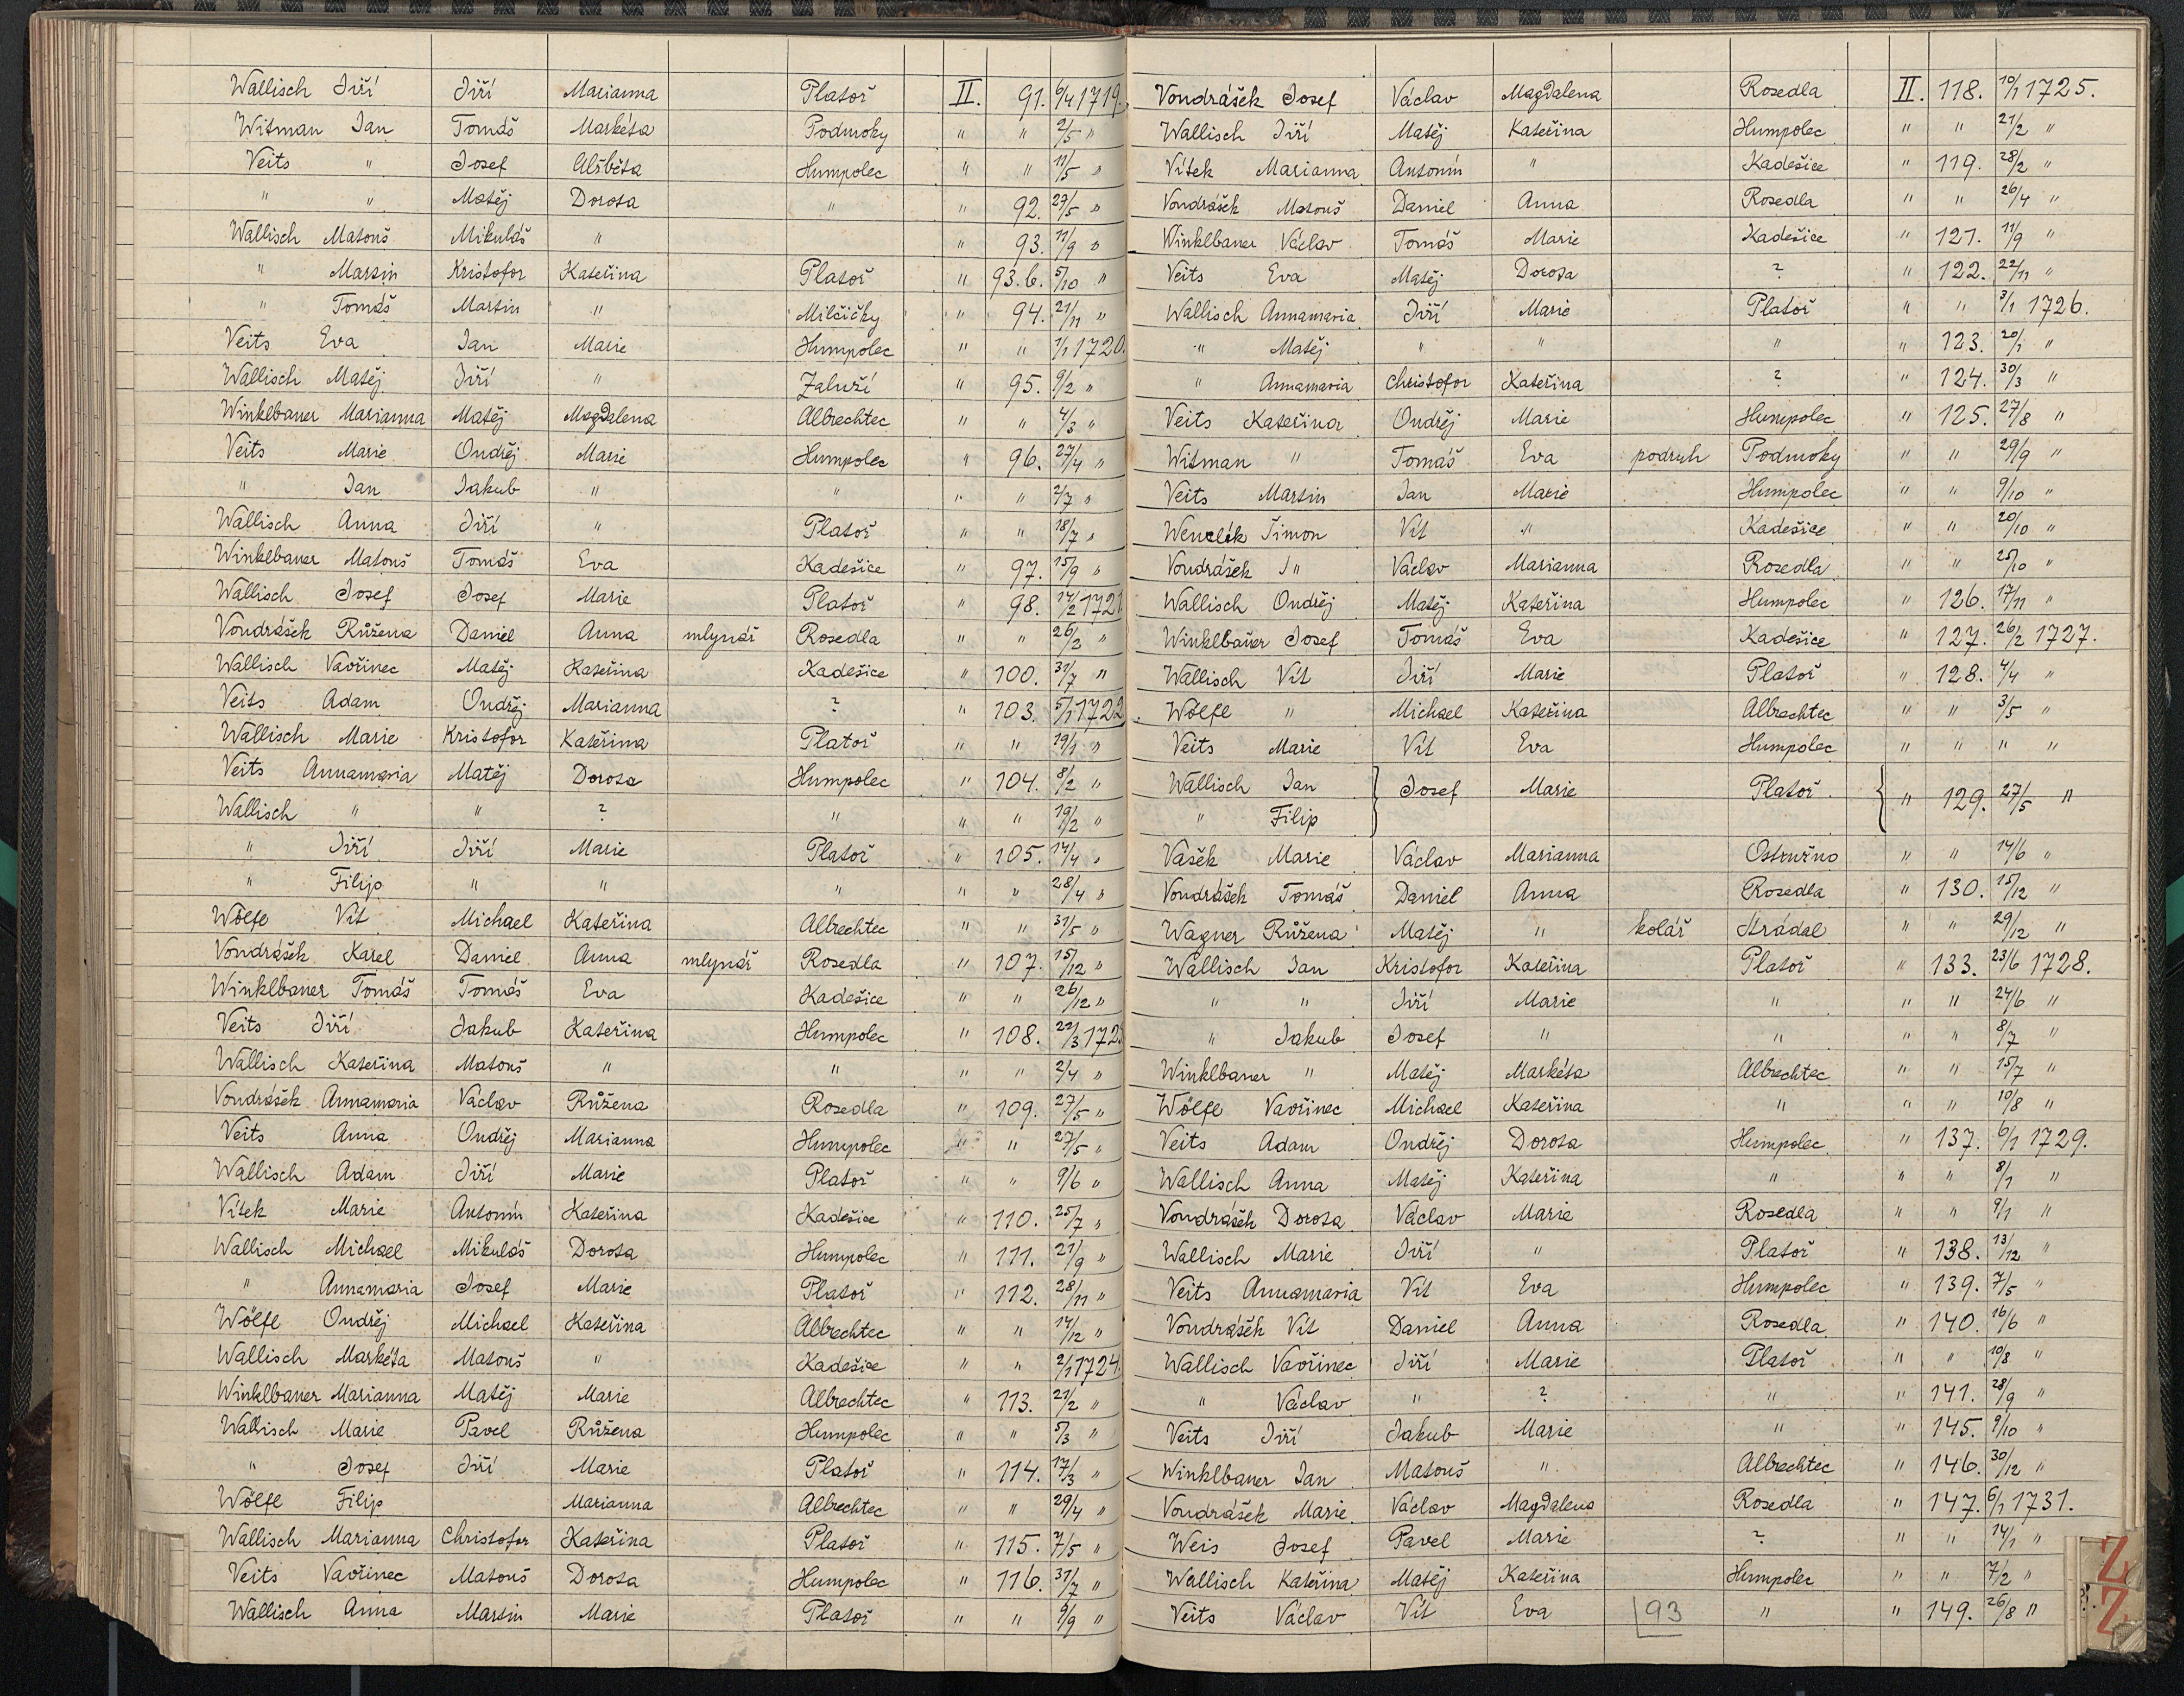 Wallisch Jiří Jiří Marianna Platoř II. 91. 6/4 1719.
Witman Jan Tomáš Markéta Podmoky " " 2/5 "
Veits " Josef Alžběta Humpolec " " 11/5 "
" " Matěj Dorota " " 92. 27/5 "
Wallisch Matouš Mikuláš " " 93. 11/9 "
" Martin Kristofor Kateřina Platoř " 93.b. 5/10 "
" Tomáš Martin " Milčičky " 94. 21/11 "
Veits Eva Jan Marie Humpolec " " 1/1 1720.
Wallisch Matěj Jiří " Zaluží " 95. 9/2 "
Winklbauer Marianna Matěj Magdalena Albrechtec " " 4/3 "
Veits Marie Ondřej Marie Humpolec " 96. 27/4 "
" Jan Jakub " " " " 2/7 "
Wallisch Anna Jiří " Platoř " " 18/7 "
Winklbauer Matouš Tomáš Eva Kadešice " 97. 15/9 "
Wallisch Josef Josef Marie Platoř " 98. 14/2 1721
Vondrášek Růžena Daniel Anna mlynář Rosedla " " 26/2 "
Wallisch Vavřinec Matěj Kateřina Kadešice " 100. 31/7 "
Veits Adam Ondřej Marianna ? " 103. 5/1 1722
Wallisch Marie Kristofor Kateřina Platoř " " 19/1 "
Veits Annamaria Matěj Dorota Humpolec " 104. 8/2 "
Wallisch " " ? " " " 19/2 "
" Jiří Jiří Marie Platoř " 105. 14/4 "
" Filip " " " " " 28/4 "
Wölfl Vít Michael Kateřina Albrechtec " " 31/5 "
Vondrášek Karel Daniel Anna mlynář Rosedla " 107. 15/12 "
Winklbauer Tomáš Tomáš Eva Kadešice " " 26/12 "
Veits Jiří Jakub Kateřina Humpolec " 108. 22/3 1723
Wallisch Kateřina Matouš " " " " 2/4 "
Vondrášek Annamaria Václav Růžena Rosedla " 109. 27/5 "
Veits Anna Ondřej Marianna Humpolec " " 27/5 "
Wallisch Adam Jiří Marie Platoř " " 9/6 "
Vítek Marie Antonín Kateřina Kadešice " 110. 25/7 "
Wallisch Michael Mikuláš Dorota Humpolec " 111. 21/9 "
" Annamaria Josef Marie Platoř " 112. 28/11 "
Wölfl Ondřej Michael Kateřina Albrechtec " " 14/12 "
Wallisch Markéta Matouš " Kadešice " " 2/1 1724.
Winklbauer Marianna Matěj Marie Albrechtec " 113. 21/2 "
Wallisch Marie Pavel Růžena Humpolec " " 5/3 "
" Josef Jiří Marie Platoř " 114. 17/3 "
Wölfl Filip Marianna Albrechtec " " 29/4 "
Wallisch Marianna Christofor Kateřina Platoř " 115. 7/5 "
Veits Vavřinec Matouš Dorota Humpolec " 116. 31/7 "
Wallisch Anna Martin Marie Platoř " " 9/9 "
Vondrášek Josef Václav Magdalena Rosedla II. 118. 10/1 1725.
Wallisch Jiří Matěj Kateřina Humpolec " " 21/2 "
Vítek Marianna Antonín " Kadešice " 119. 28/2 "
Vondrášek Matouš Daniel Anna Rosedla " " 26/4 "
Winklbauer Václav Tomáš Marie Kadešice " 121. 11/9 "
Veits Eva Matěj Dorota ? " 122. 22/11 "
Wallisch Annamaria Jiří Marie Platoř " " 3/1 1726.
" Matěj " " " " 123. 20/1 "
" Annamaria Christofor Kateřina ? " 124. 30/3 "
Veits Kateřina Ondřej Marie Humpolec " 125. 27/8 "
Witman " Tomáš Eva podruh Podmoky " " 29/9 "
Veits Martin Jan Marie Humpolec " " 9/10 "
Wenclík Šimon Vít " Kadešice " " 20/10 "
Vondrášek J " Václav Marianna Rosedla " " 25/10 "
Wallisch Ondřej Matěj Kateřina Humpolec " 126. 17/11 "
Winklbauer Josef Tomáš Eva Kadešice " 127. 26/2 1727.
Wallisch Vít Jiří Marie Platoř " 128. 4/4 "
Wölfl " Michael Kateřina Albrechtec " " 3/5 "
Veits Marie Vít Eva Humpolec " " " "
Wallisch Jan } Josef Marie Platoř { " 129. 27/5 "
" Filip
Vašek Marie Václav Marianna Ostružno " " 14/6 "
Vondrášek Tomáš Daniel Anna Rosedla " 130. 15/12 "
Wagner Růžena Matěj " kolář Hrádal " " 29/12 "
Wallisch Jan Kristofor Kateřina Platoř " 133. 23/6 1728.
" " Jiří Marie " " " 24/6 "
" Jakub Josef " " " " 8/7 "
Winklbauer " Matěj Markéta Albrechtec " " 15/7 "
Wölfl Vavřinec Michael Kateřina " " " 10/8 "
Veits Adam Ondřej Dorota Humpolec " 137. 6/1 1729.
Wallisch Anna Matěj Kateřina " " " 8/1 "
Vondrášek Dorota Václav Marie Rosedla " " 9/1 "
Wallisch Marie Jiří " Platoř " 138. 13/12 "
Veits Annamaria Vít Eva Humpolec " 139. 7/5 "
Vondrášek Vít Daniel Anna Rosedla " 140. 16/6 "
Wallisch Vavřinec Jiří Marie Platoř " " 10/8 "
" Václav " ? " " 141. 28/9 "
Veits Jiří Jakub Marie " " 145. 9/10 "
Winklbauer Jan Matouš " Albrechtec " 146. 30/12 "
Vondrášek Marie Václav Magdalena Rosedla " 147. 6/1 1731.
Weis Josef Pavel Marie ? " " 14/1 "
Wallisch Kateřina Matěj Kateřina Humpolec " " 7/2 "
Veits Václav Vít Eva 93 " " 149. 26/8 "
Z
Z